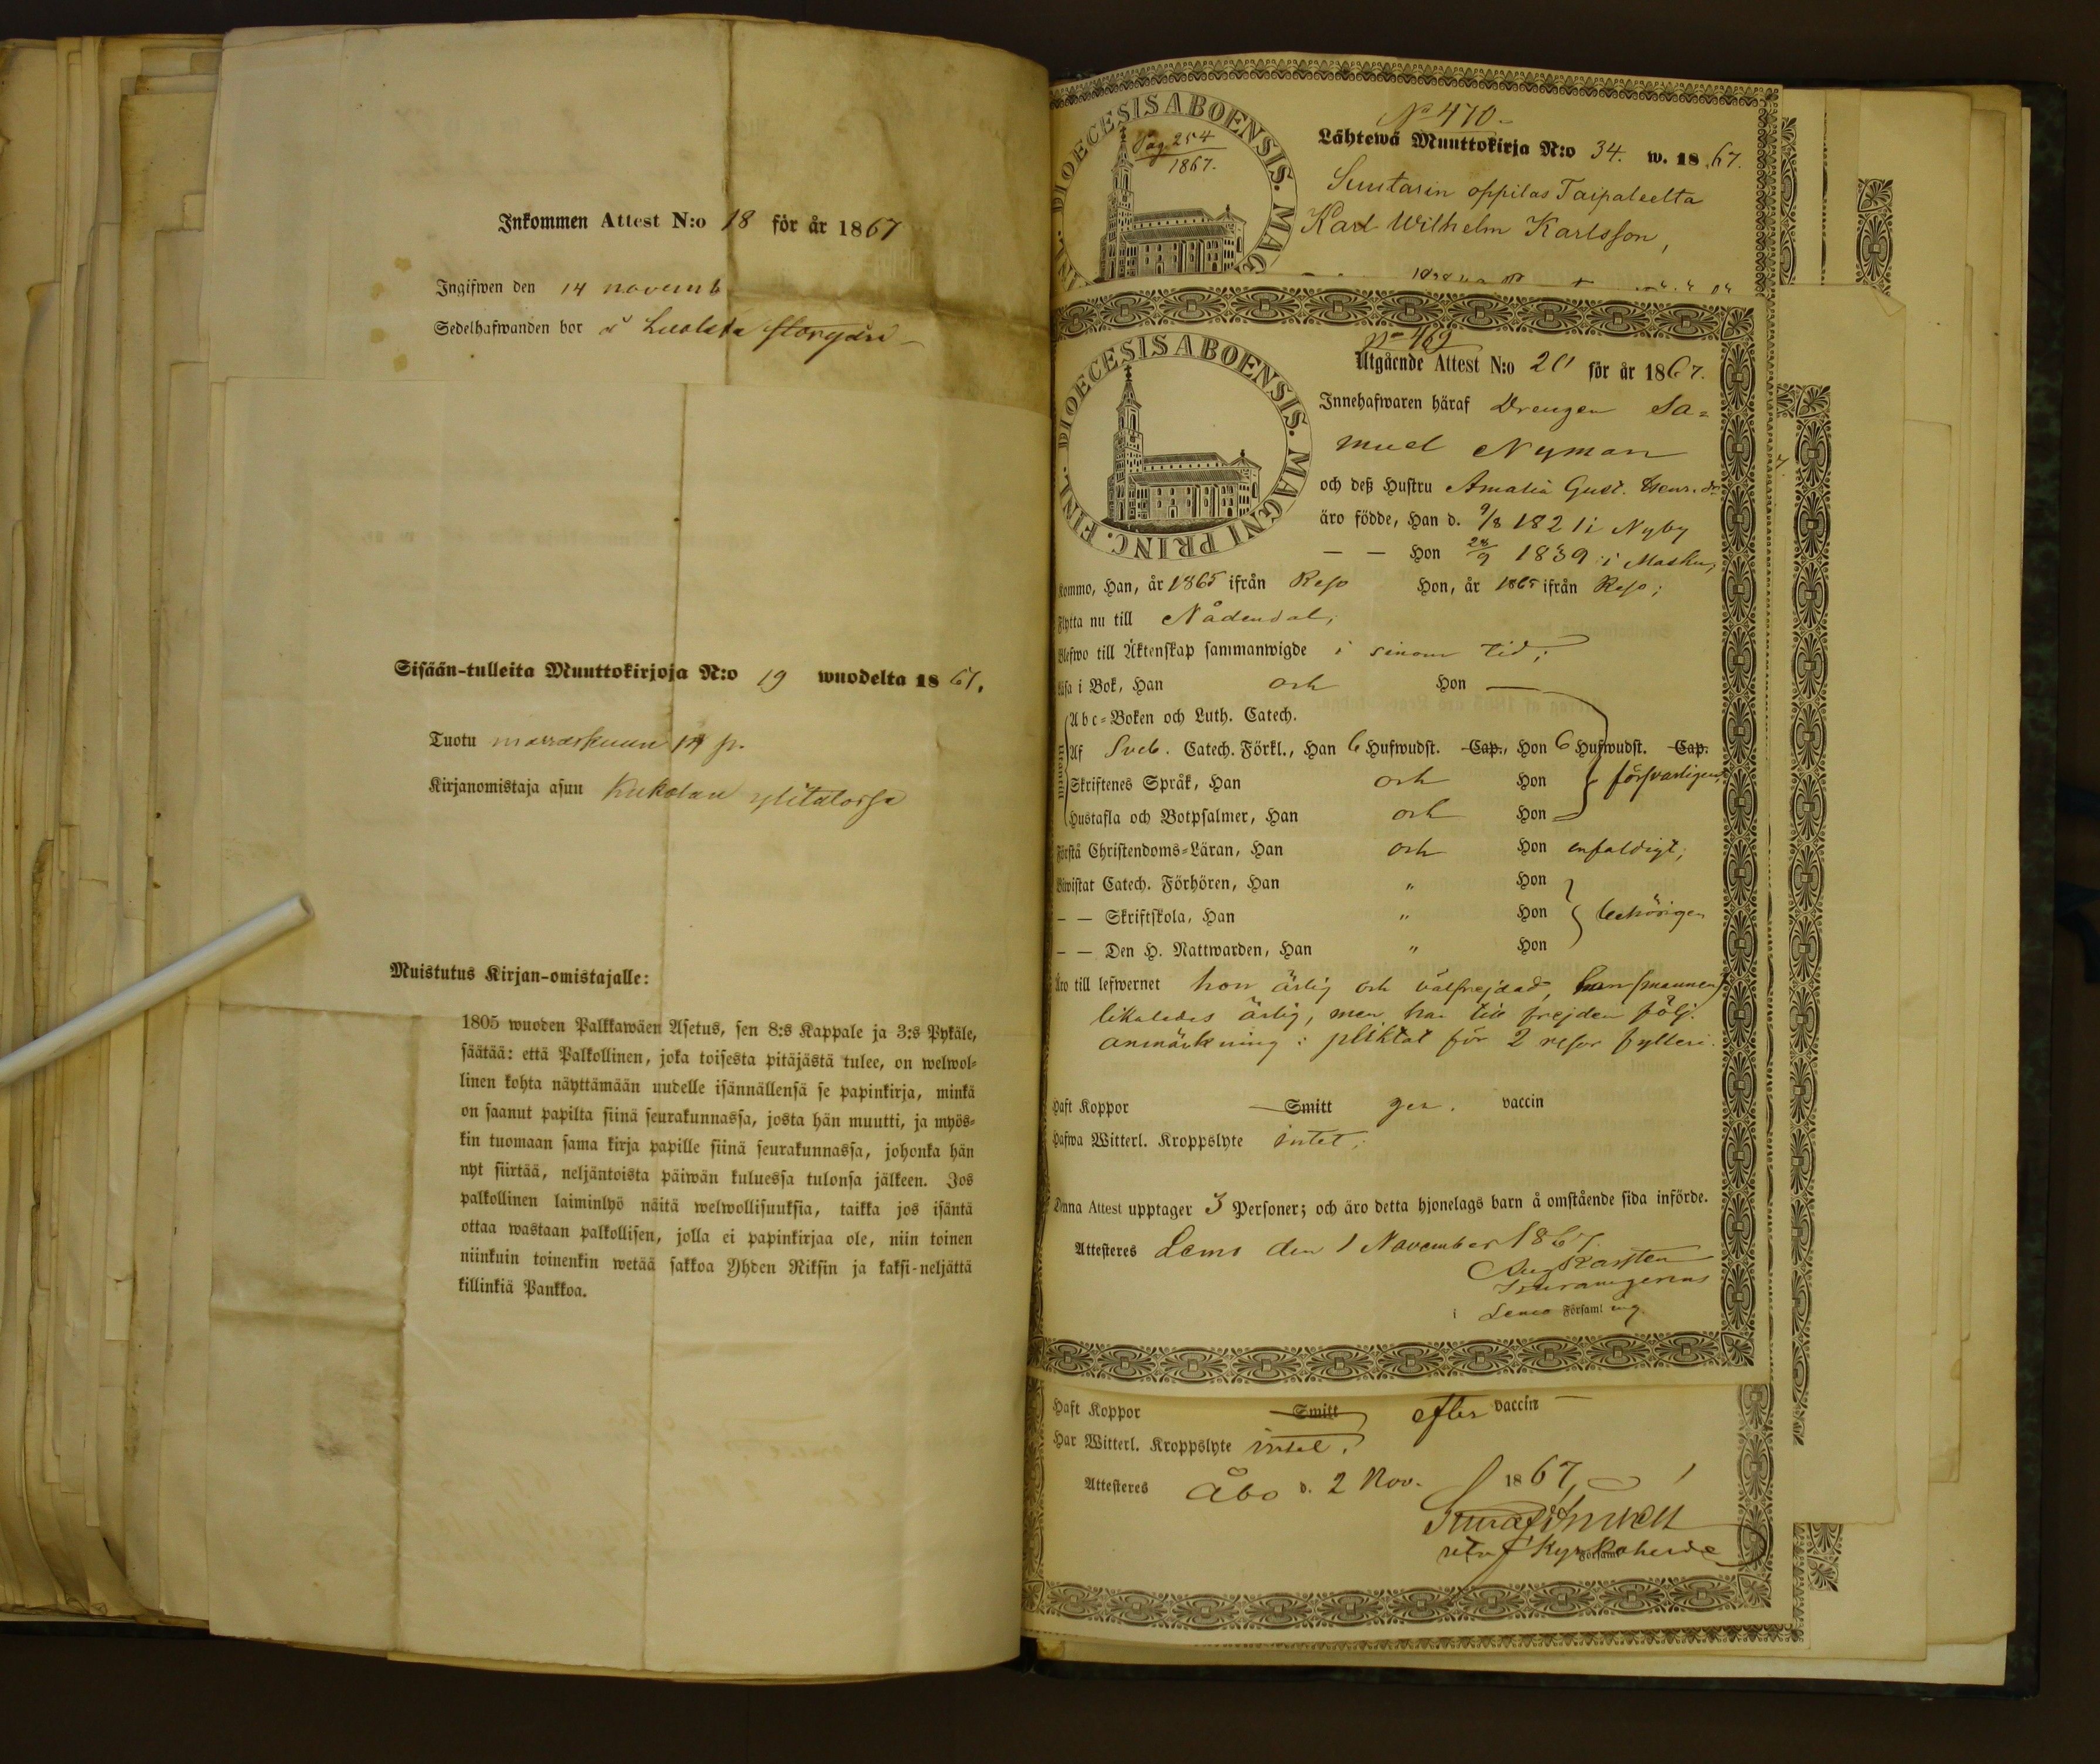 Inkommen Attest N:o 18 för år 1867
Ingifwen den 14 novemb
Sedelhafwanden bor å Luolala storgård
Sisään-tulleita Muuttokirjoja N:o 19 wuodelta 1867.
Tuotu marraskuun 14 p.
Kirjanomistaja asuu Kukolan ylitalossa
Muistutus Kirjan-omistajalle:
1805 wuoden Palkkawäen Asetus, sen 8:s Kappale ja 3:s Pykäle,
säätää: että Palkollinen, joka toisesta pitäjästä tulee, on welwol-
linen kohta näyttämään uudelle isännällensä se papinkirja, minkä
on saanut papilta siinä seurakunnassa, josta hän muutti, ja myös-
kin tuomaan sama kirja papille siinä seurakunnassa, johonka hän
nyt siirtää, neljäntoista päiwän kuluessa tulonsa jälkeen. Jos
palkollinen laiminlyö näitä welwollisuuksia, taikka jos isäntä
ottaa wastaan palkollisen, jolla ei papinkirjaa ole, niin toinen
niinkuin toinenkin wetää sakkoa Yhden Riksin ja kaksi-neljättä
killinkiä Pankkoa.
DIOECESIS ABOENSIS. MAG
Pag. 254
1867.
No 470.
Lähtewä Muuttokirja N:o 34. w. 1867.
Suutarin oppilas Taipaleelta
Karl Wilhelm Karlsson,
FINL. DIOECESIS ABOENSIS. MAGNI PRINC.
No 469
Utgående Attest N:o 20 för år 1867.
Innehafwaren häraf Drengen Sa=
muel Nyman
och deß Hustru Amalia Gust. Henr. dr
äro födde, Han d. 9/8 1821 i Nyby
— — Hon 24/9 1839 i Masku,
kommo, Han, år 1865 ifrån Reso Hon, år 1865 ifrån Reso;
Flytta nu till Nådendal;
Blefwo till Äktenskap sammanwigde i sinom tid;
Läsa i Bok, Han och Hon —
Abc=Boken och Luth. Catech.
Af Sveb. Catech. Förkl., Han 6 Hufwudst. Cap., Hon 6 Hufwudst. Cap.
Skriftenes Språk, Han och Hon försvarligen,
Hustafla och Botpsalmer, Han och Hon
Förstå Christendoms=Läran, Han och Hon enfaldigt;
Biwistat Catech. Förhören, Han " Hon
— — Skriftskola, Han " Hon behörigen
— — Den H. Nattwarden, Han " Hon
Äro till lefwernet hon ärlig och välfrejdad, han (mannen)
likaledes ärlig, men har till frejden följ.
anmärkning: pliktat för 2 resor fylleri.
Haft Koppor Smitt gen. vaccin
Hafwa Witterl. Kroppslyte intet;
Denna Attest upptager 3 Personer; och äro detta hjonelags barn å omstående sida införde.
Attesteres Lemo den 1 November 1867.
Aug Karsten
i Lemo Församling.
Haft Koppor Smitt efter vaccin —
Har Witterl. Kroppslyte intet.
Attesteres Åbo d. 2 Nov. 1867,